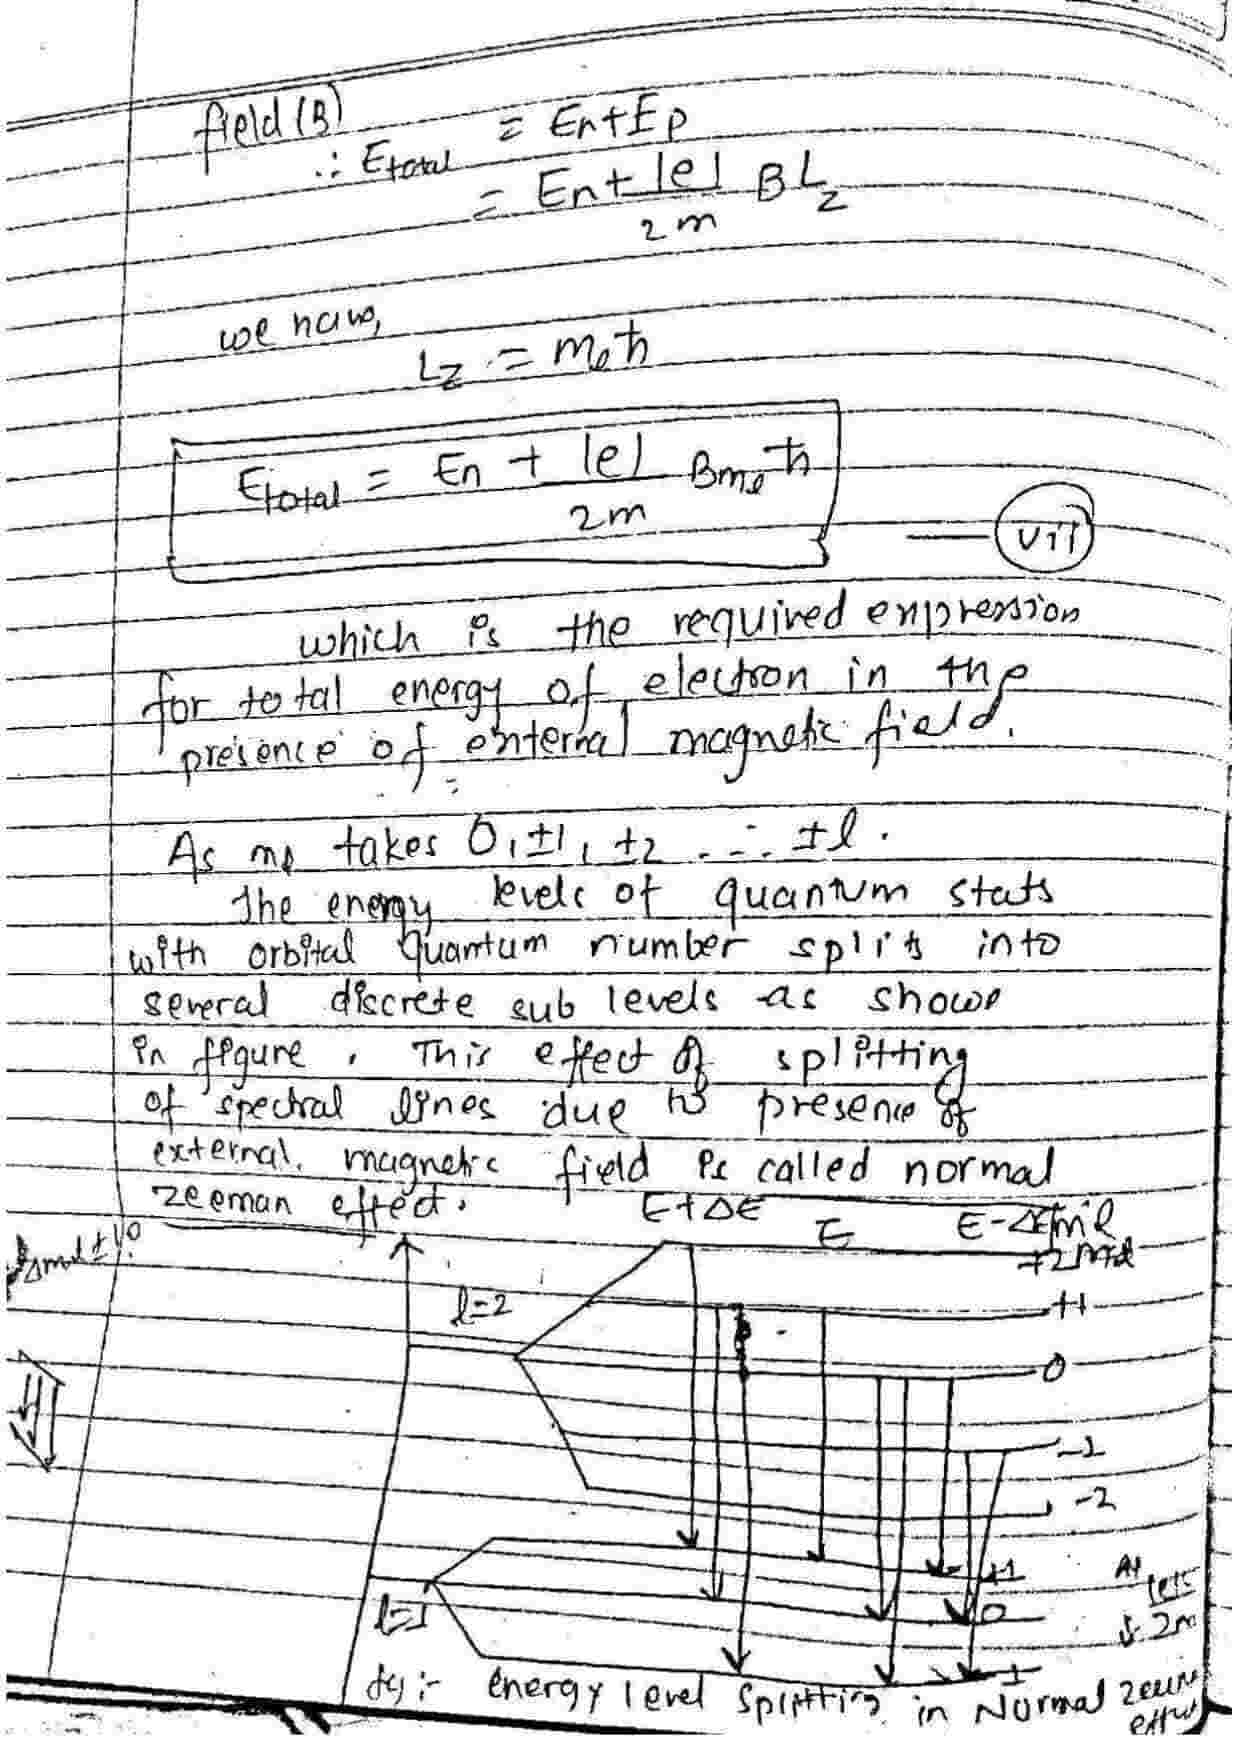 field (B)
∴ Etotal = En + Ep
= En + |e|/2m B Lz
we have,
Lz = mℓ ħ
Etotal = En + |e|/2m B mℓ ħ — (vii)
which is the required expression
for total energy of electron in the
presence of external magnetic field.
As mℓ takes 0, ±1, ±2 ... ±l.
The energy levels of quantum stats
with orbital quantum number splits into
several discrete sub levels as shown
in figure. This effect of splitting
of spectral lines due to presence of
external magnetic field is called normal
zeeman effect.
E+ΔE E E-ΔE mℓ
+2
l=2 +1
0
-1
-2
+1
l=1 0
2m
fig :- energy level splitting in Normal zeeman
effect